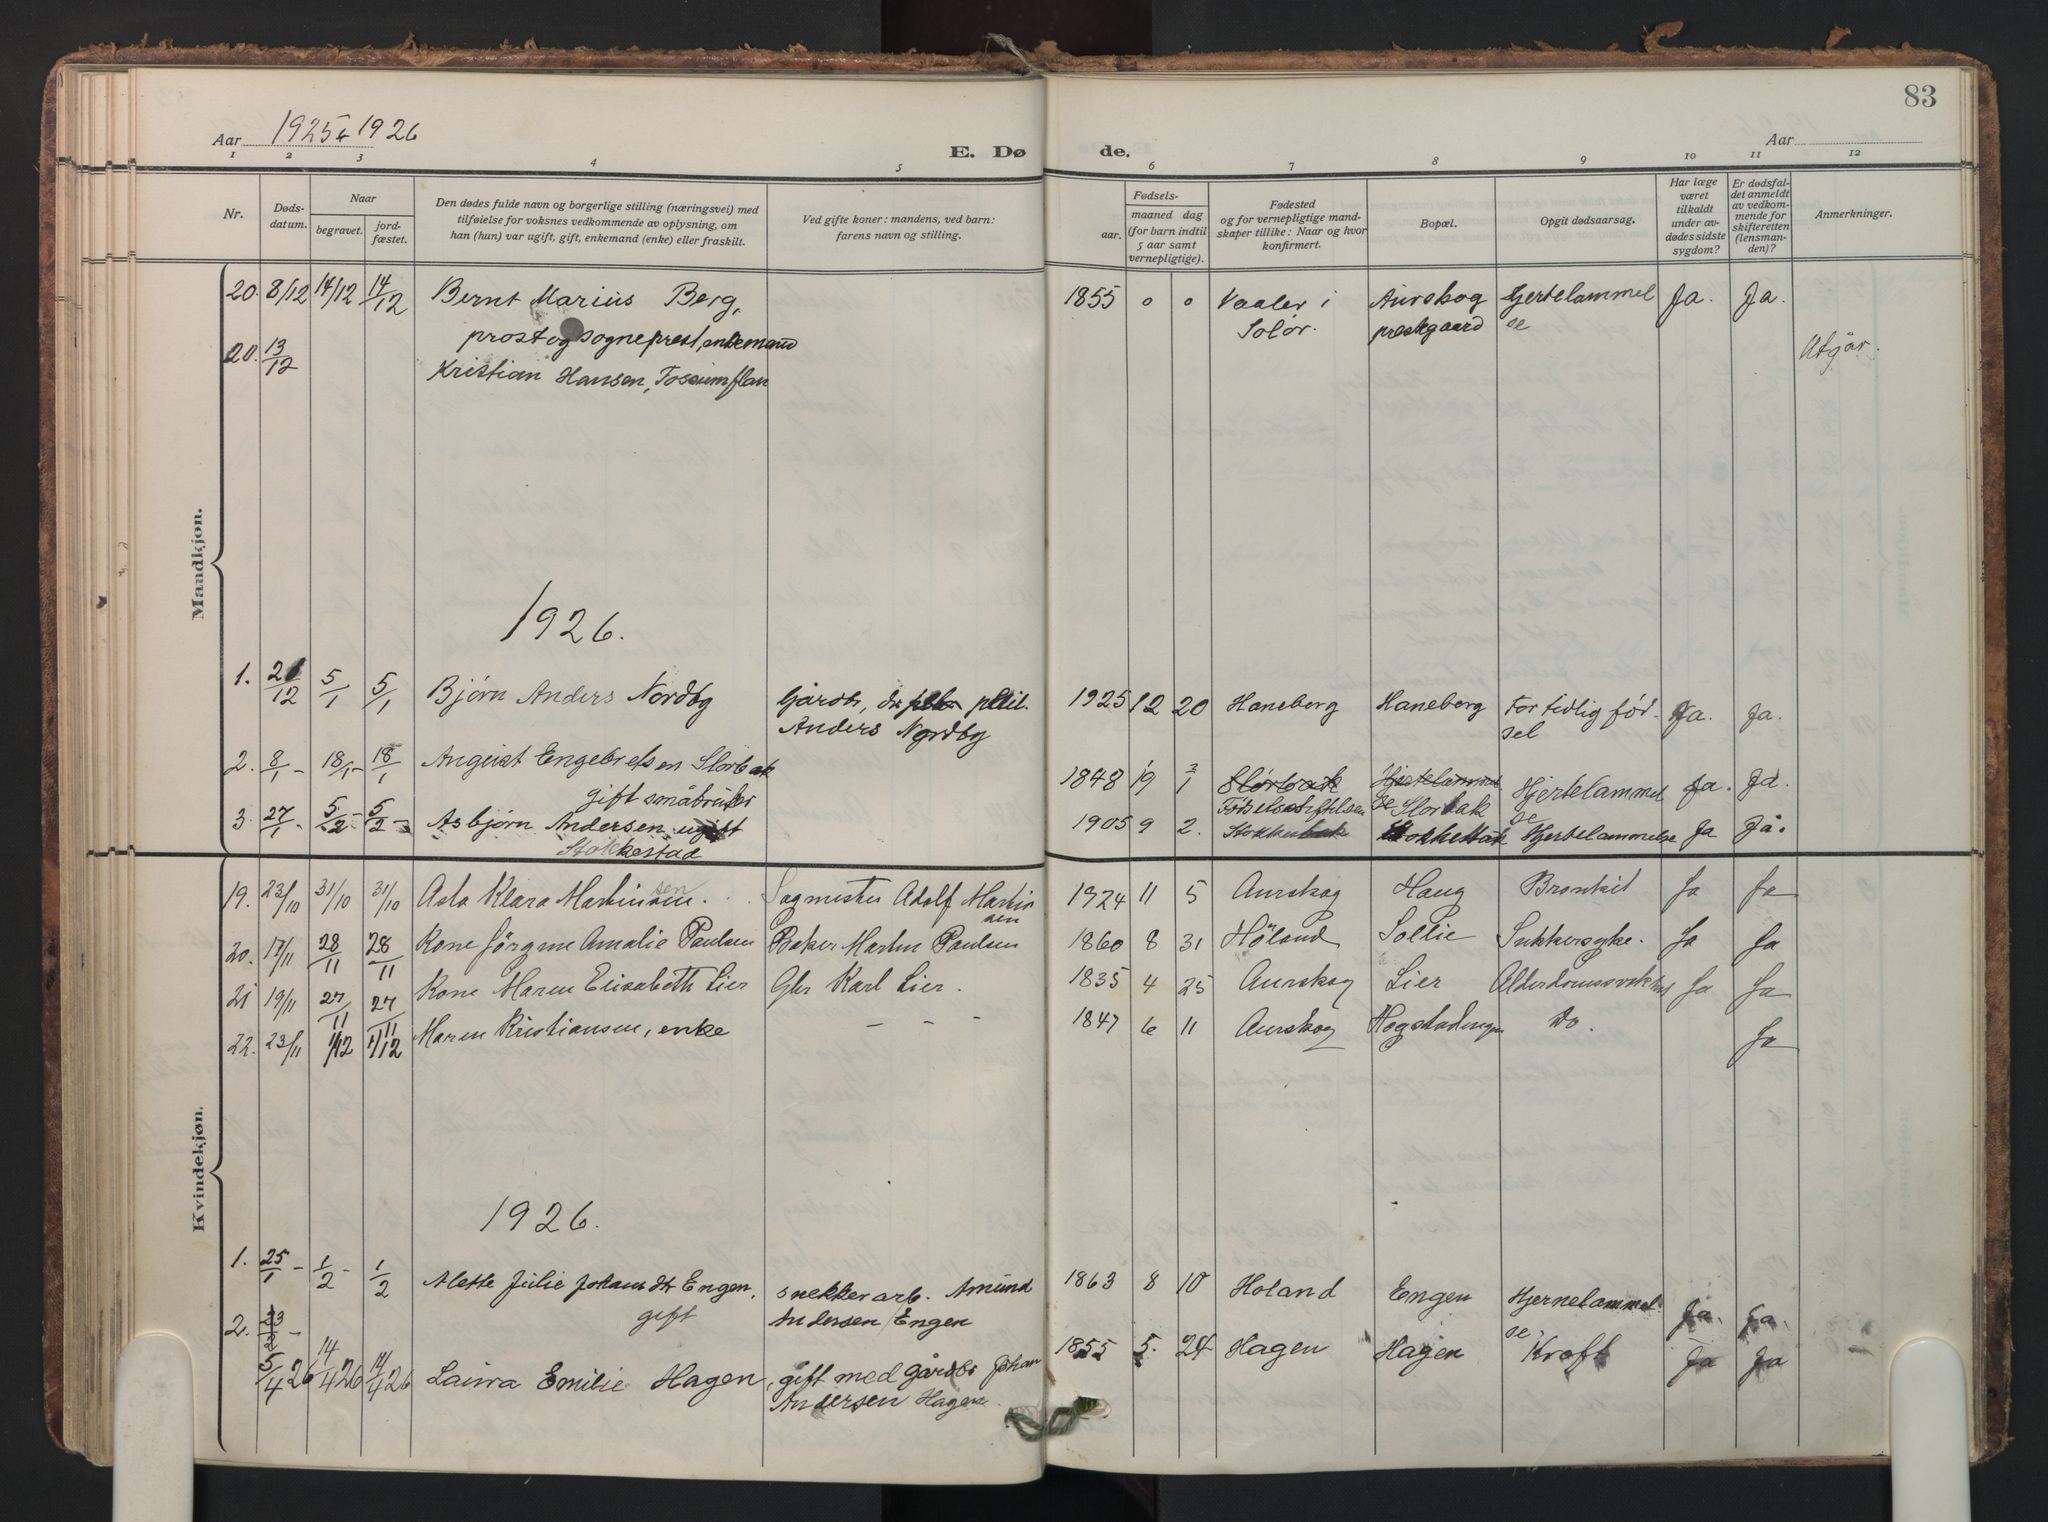 83
Aar 1925 & 1926
E. Døde.
Aar
1 2 3 4 5 6 7 8 9 10 11 12
Nr.
Døds-
datum.
Naar
begravet.
jord-
fæstet.
Den dødes fulde navn og borgerlige stilling (næringsvei) med
tilføielse for voksnes vedkommende av oplysning, om
han (hun) var ugift, gift, enkemand (enke) eller fraskilt.
Ved gifte koner: mandens, ved barn:
farens navn og stilling.
Fødsels-
aar.
maaned dag
(for barn indtil
5 aar samt
vernepligtige).
Fødested
og for vernepligtige mand-
skaper tillike: Naar og hvor
konfirmert.
Bopæl.
Opgit dødsaarsag.
Har læge
været
tilkaldt
under av-
dødes sidste
sygdom?
Er dødsfal-
det anmeldt
av vedkom-
mende for
skifteretten
(lensman-
den)?
Anmerkninger.
Mandkjøn.
20. 8/12 14/12 14/12 Bernt Marius Berg, 1855 0 0 Vaaler i Aurskog Hjertelammel Ja. Ja.
prost og sogneprest, enkemand Solør. prestgaard se
20. 13/12 Kristian Hansen, Utgår.
1926.
1. 12 5/1 5/1 Bjørn Anders Nordby Gårdbr, 1925 12 20 Haneberg Haneberg For tidlig fød- Ja. Ja.
Anders Nordby sel
2. 8/1 - 18/1 - 18/1 August Engebretsen Slorbak 1848 19 1 Slorbak Hjertelammel Ja. Ja.
gift småbruker Fødselsstiftelsen se Slorbak se
3. 27/1 - 5/2 - 5/2 - Asbjørn Andersen ugift 1905 9 2. Hjertelammelse Ja Ja.
Stokkestad
Kvindekjøn.
19. 23/10 31/10 31/10 Asta Klara Martinsen. Sagmester Adolf Martin 1924 11 5 Aurskog Haug Bronkit Ja Ja
sen
20. 17/11 28/11 28/11 Kone Jørgine Amalie Paulsen Baker Martin Paulsen 1860 8 31 Høland Sollie Sukkersyke. Ja Ja
21 19/11 27/11 27/11 Kone Maren Elisabeth Lier Gbr Karl Lier. 1835 4 25 Aurskog Lier Ja Ja
22. 23/11 1/12 1/12 Maren Kristiansen, enke - - - 1847 6 11 Aurskog Do. Ja
1926.
1. 25/1 - 1/2 - 1/2 Alette Julie Johansdtr Engen, snekkerarb. Amund 1863 8 10 Høland Engen Hjernelammel Ja. Ja.
gift Andersen Engen se.
2.
5/4 26 14/4 26 14/4 26 Laura Emilie Hagen, gift med gårdbr Johan 1855 5. 24 Hagen Hagen Kræft Ja Ja
Andersen Hagen.